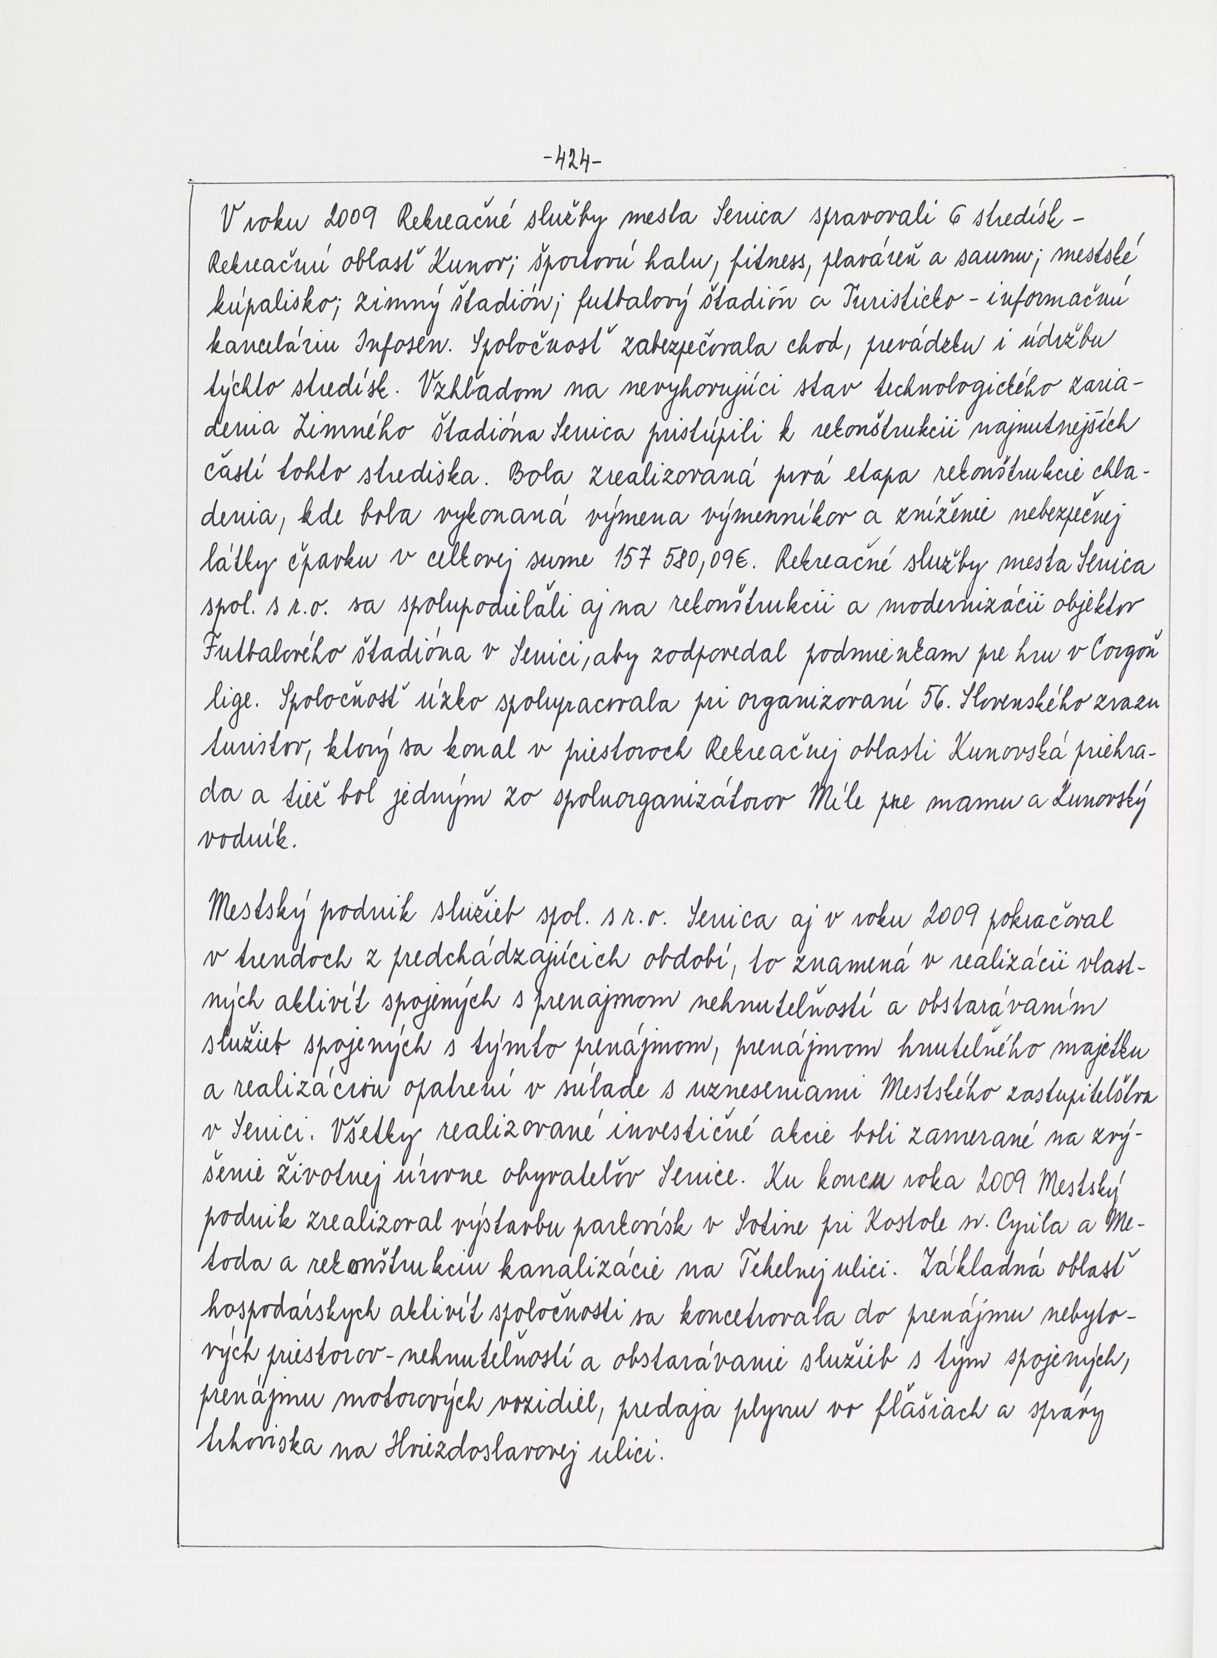 -424-
V roku 2009 Rekreačné služby mesta Senica spravovali 6 stredísk -
Rekreačnú oblasť Kunov; športovú halu, fitness, plaváreň a saunu; mestské
kúpalisko; zimný štadión; futbalový štadión a Turisticko - informačnú
kanceláriu Infosen. Spoločnosť zabezpečovala chod, prevádzku i údržbu
týchto stredísk. Vzhľadom na nevyhovujúci stav technologického zaria-
denia Zimného štadióna Senica pristúpili k rekonštrukcii najnutnejších
častí tohto strediska. Bola zrealizovaná prvá etapa rekonštrukcie chla-
denia, kde bola vykonaná výmena výmenníkov a zníženie nebezpečnej
látky čpavku v celkovej sume 157 580,09€. Rekreačné služby mesta Senica
spol. s r.o. sa spolupodieľali aj na rekonštrukcii a modernizácii objektov
Futbalového štadióna v Senici, aby zodpovedal podmienkam pre hru v Corgoň
lige. Spoločnosť úzko spolupracovala pri organizovaní 56. Slovenského zrazu
turistov, ktorý sa konal v priestoroch Rekreačnej oblasti Kunovská priehra-
da a tiež bol jedným zo spoluorganizátorov Míle pre mamu a Kunovský
vodník.
Mestský podnik služieb spol. s r.o. Senica aj v roku 2009 pokračoval
v trendoch z predchádzajúcich období, to znamená v realizácii vlast-
ných aktivít spojených s prenajmom nehnuteľností a obstarávaním
služieb spojených s týmto prenájmom, prenájmom hnuteľného majetku
a realizáciou opatrení v súlade s uzneseniami Mestského zastupiteľstva
v Senici. Všetky realizované investičné akcie boli zamerané na zvý-
šenie životnej úrovne obyvateľov Senice. Ku koncu roka 2009 Mestský
podnik zrealizoval výstavbu parkovísk v Sotine pri Kostole sv. Cyrila a Me-
toda a rekonštrukciu kanalizácie na Tehelnej ulici. Základná oblasť
hospodárskych aktivít spoločnosti sa koncetrovala do prenájmu nebyto-
vých priestorov - nehnuteľností a obstarávanie služieb s tým spojených,
prenájmu motorových vozidiel, predaja plynu vo fľašiach a správy
trhoviska na Hviezdoslavovej ulici.